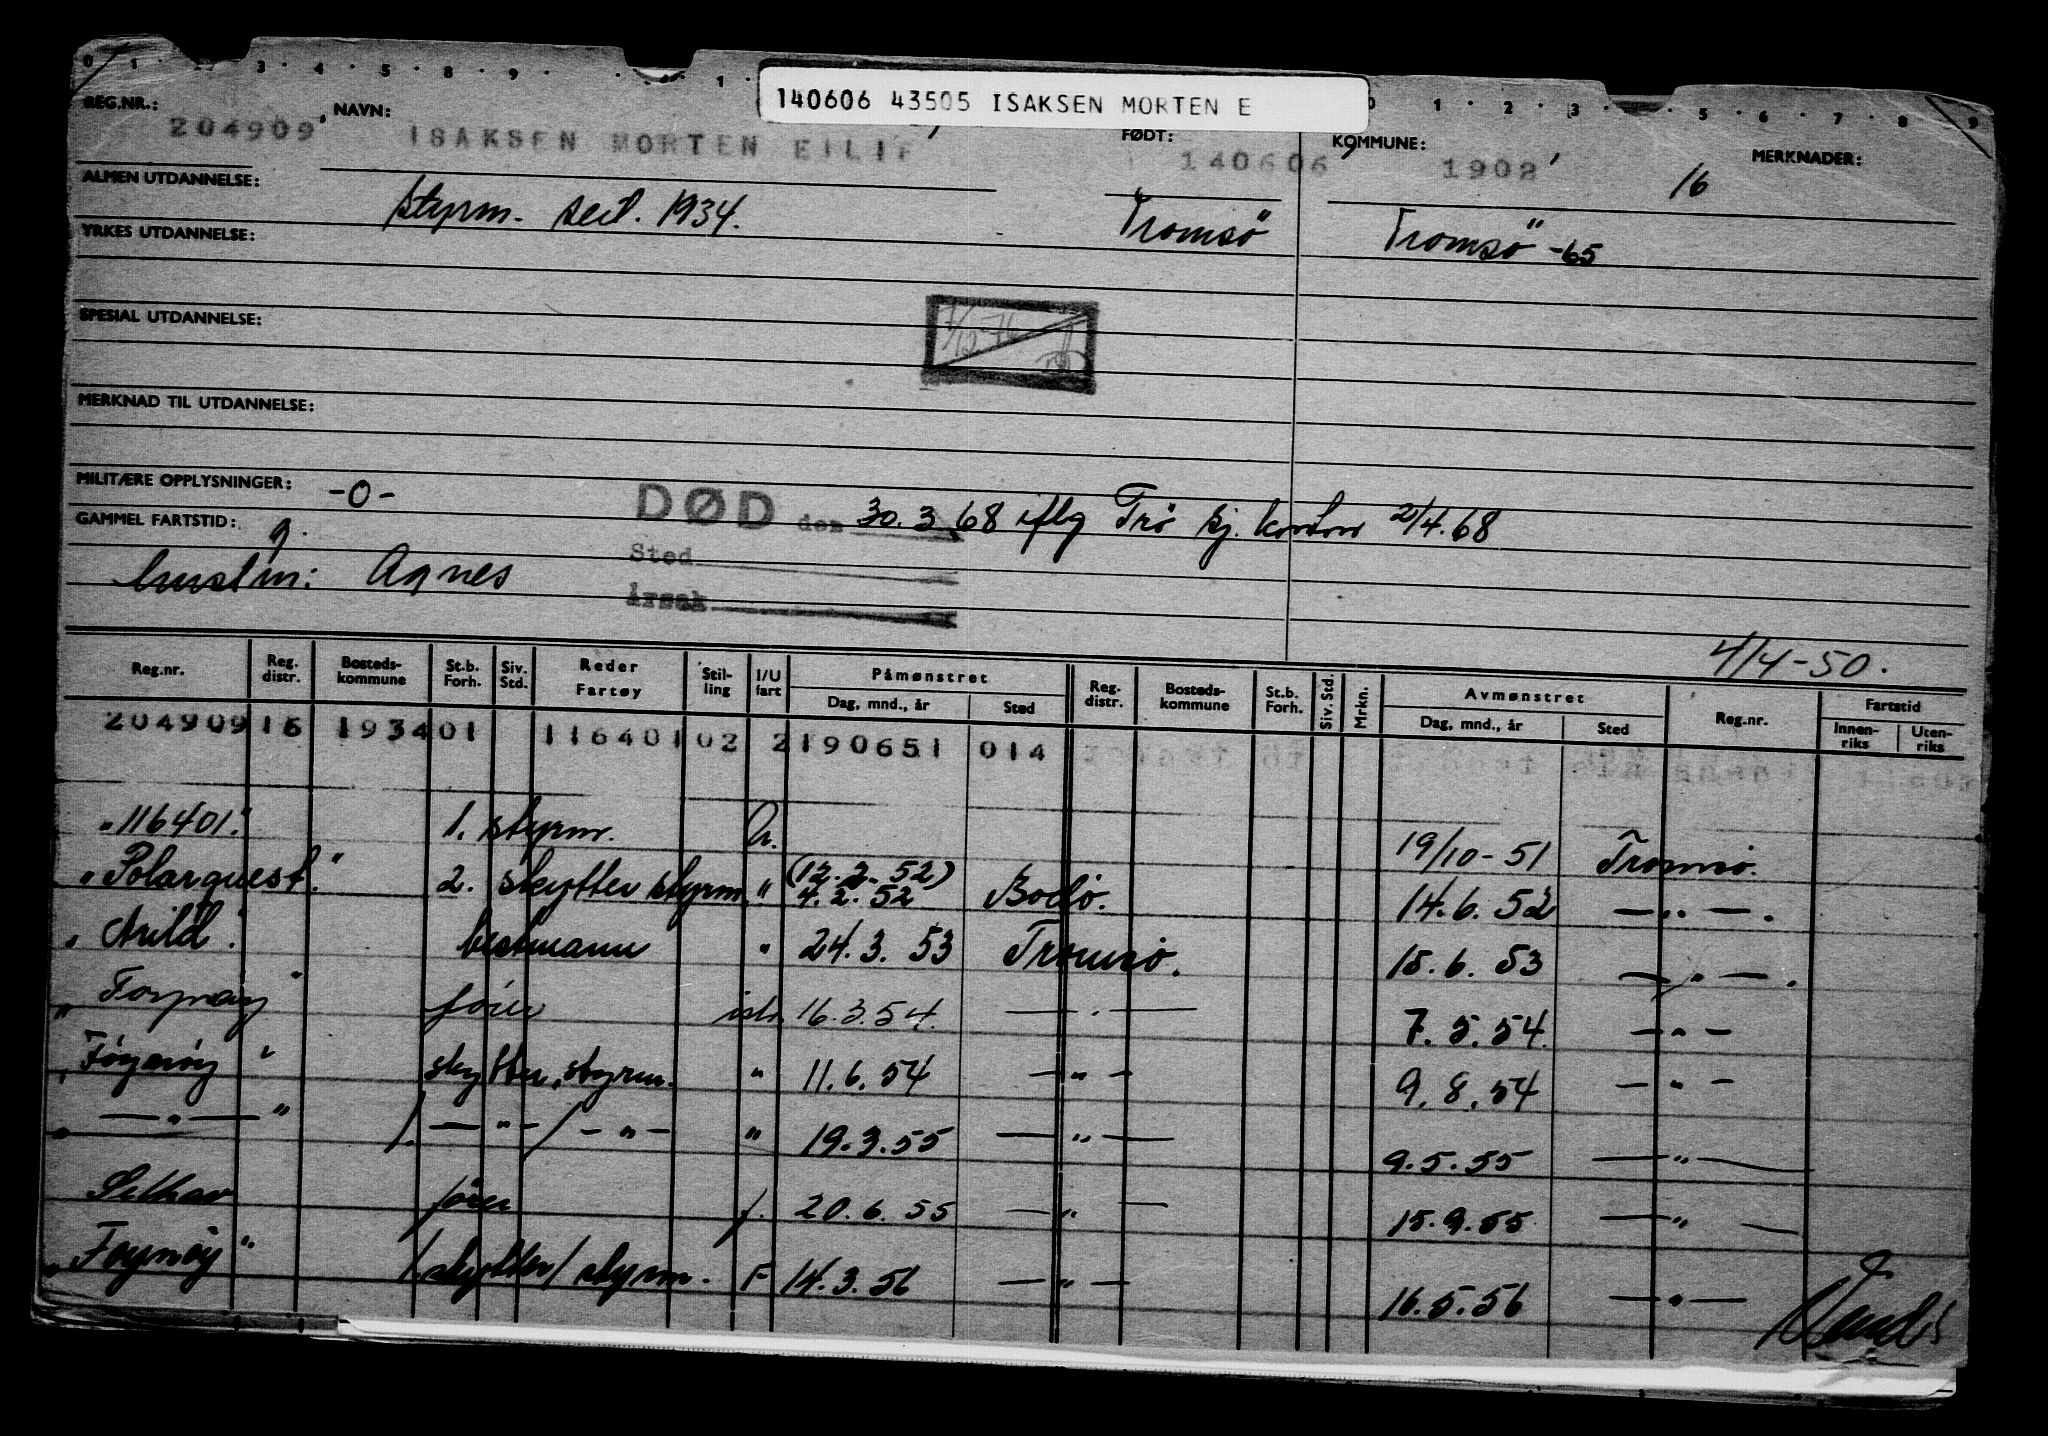 140606 43505 ISAKSEN MORTEN E
REG.NR.: 204909 NAVN: ISAKSEN MORTEN EILIF FØDT: 140606 KOMMUNE: 1902 MERKNADER: 16
ALMEN UTDANNELSE: styrm. sert. 1934. Tromsö Tromsö -65
YRKES UTDANNELSE:
SPESIAL UTDANNELSE:
MERKNAD TIL UTDANNELSE:
MILITÆRE OPPLYSNINGER: -0-
DØD den 30.3 68 iflg Trö sj. kontor 2/4.68
GAMMEL FARTSTID:
Sted
hustru: Agnes
Årsak
4/4-50.
Reg.nr. Reg. distr. Bosteds-kommune St.b. Forh. Siv. Std. Reder Fartøy Stil-ling I/U fart Påmønstret Dag, mnd., år Sted Reg. distr. Bosteds-kommune St.b. Forh. Siv. Std. Mrkn. Avmønstret Dag, mnd., år Sted Reg.nr. Fartstid Innen-riks Uten-riks
204909 16 1934 01 116401 02 2 190651 014
"116401." 1. styrm. 19/10-51 Tromsö.
"Polarquest." 2. skytter styrm. " (12.2.52) 4.2.52 Bodö. 14.6.52 — " — .
"Arild". bestmann " 24.3.53 Tromsö. 15.6.53 — " — .
"Foynøy" fører ish. 16.3.54. — . — 7.5.54. — " —
"Föynöy" skytter, styrm. " 11.6.54 — " — 9.8.54 — " —
" — " — " /. — " — / — " — " 19.3.55 — " — 9.5.55 — " —
Selhav fører f. 20.6.55 — " — 15.9.55 — " —
"Foynöy" /. skytter/ styrm. F 14.3.56 — " — 16.5.56 — " —